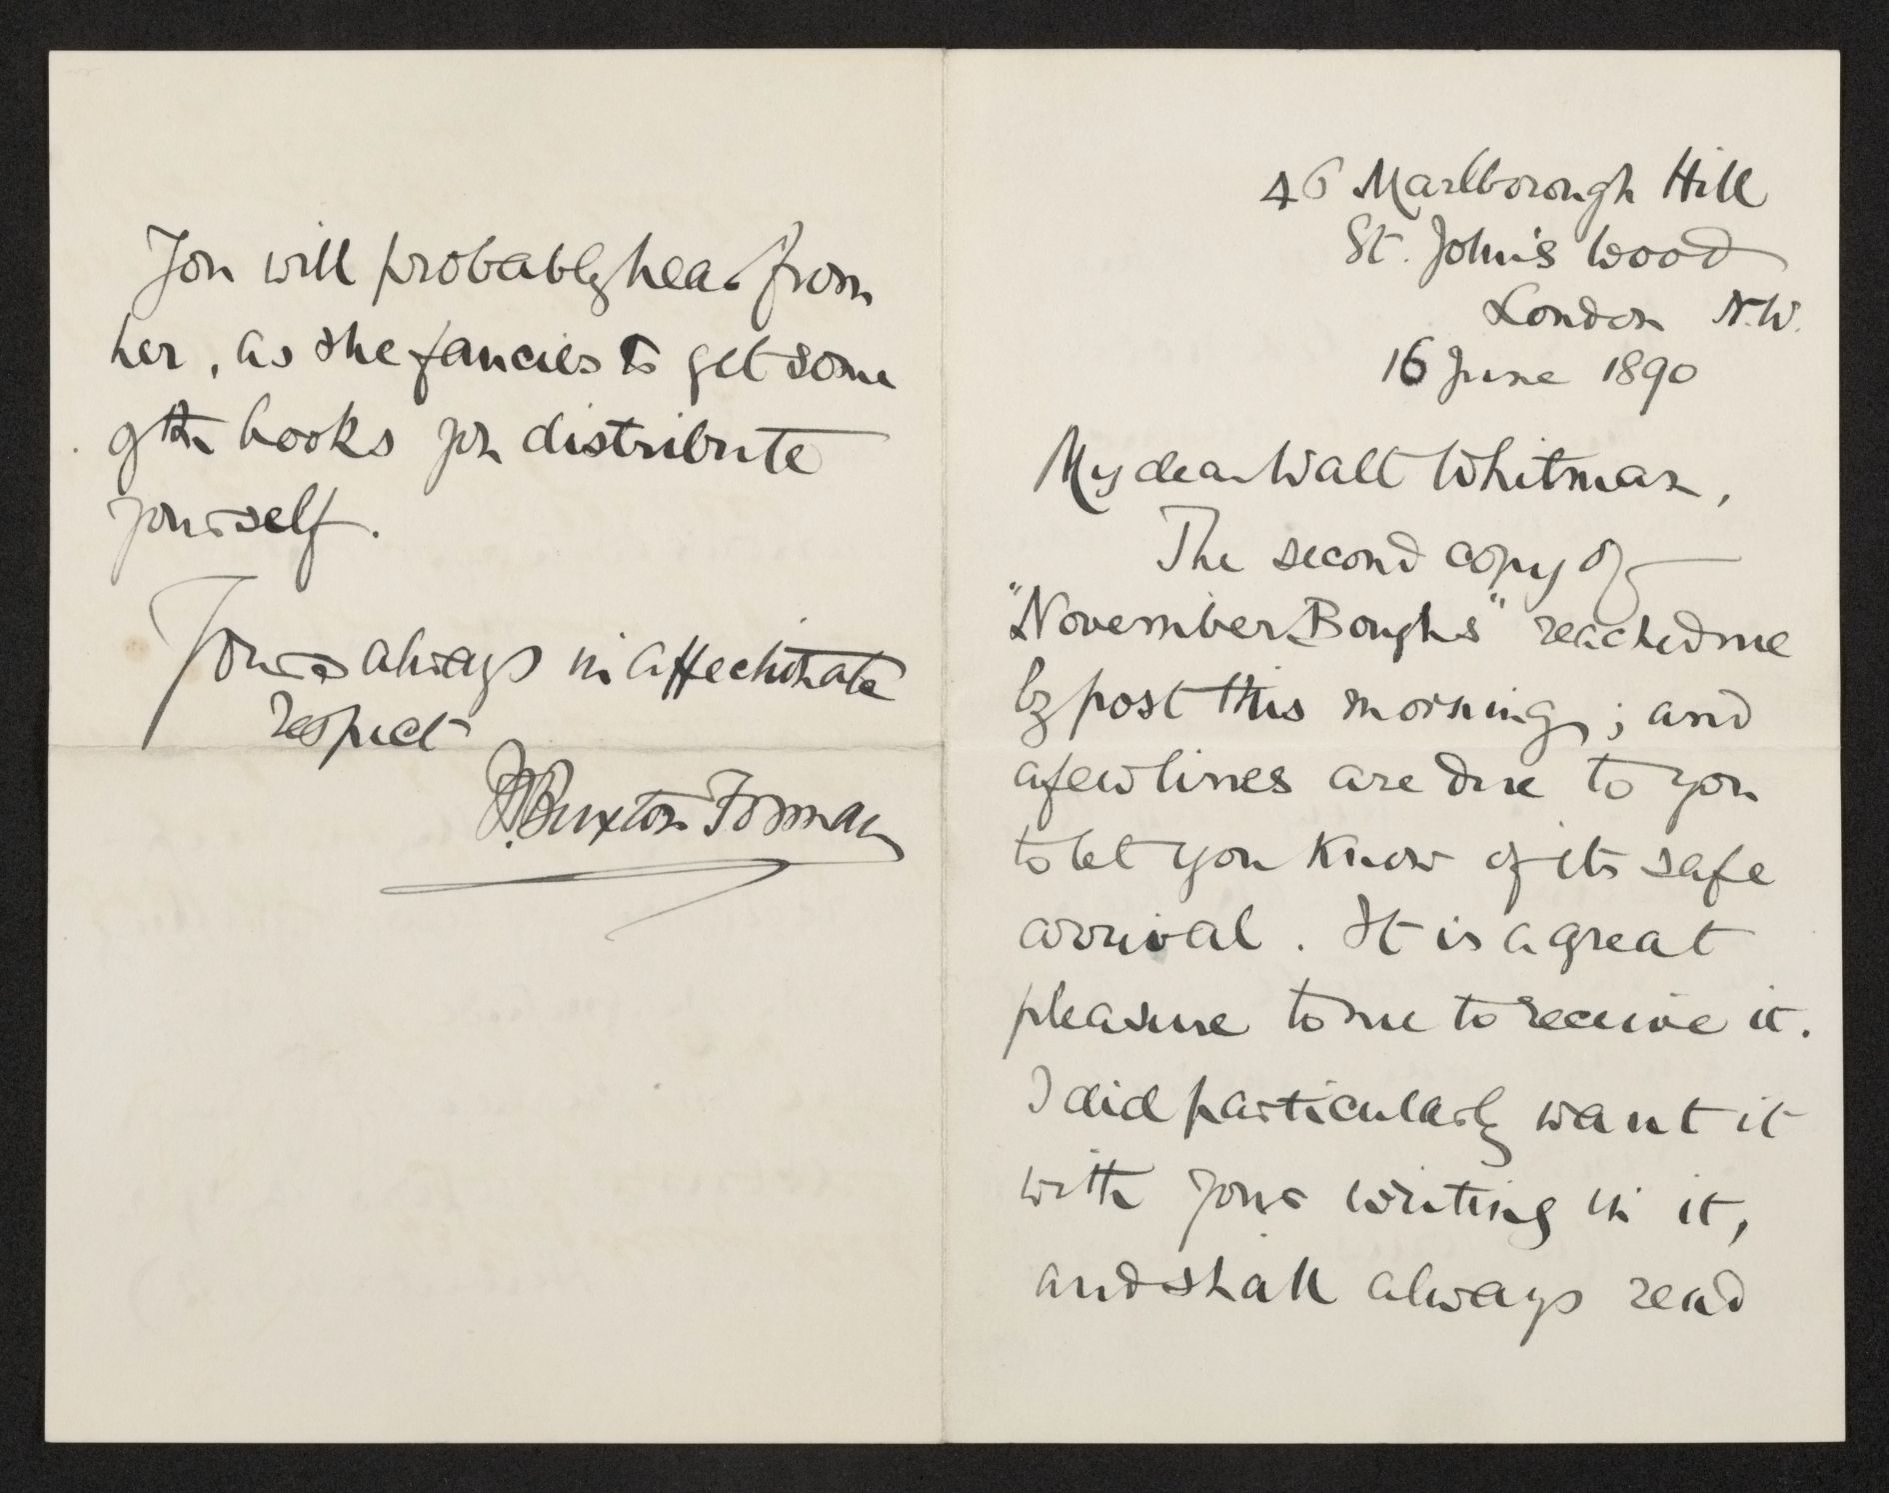 46 Marlborough Hill
St. John's Wood
London N.W.
16 June 1890
My dear Walt Whitman,
The second copy of
"November Boughs" reached me
by post this morning; and
a few lines are due to you
to let you know of its safe
arrival. It is a great
pleasure to me to receive it.
I did particularly want it
with your writing in it,
and shall always read
You will probably hear from
her, as she fancies to get some
of the books you distribute
yourself.
Yours always in affectionate
respect
H. Buxton Forman